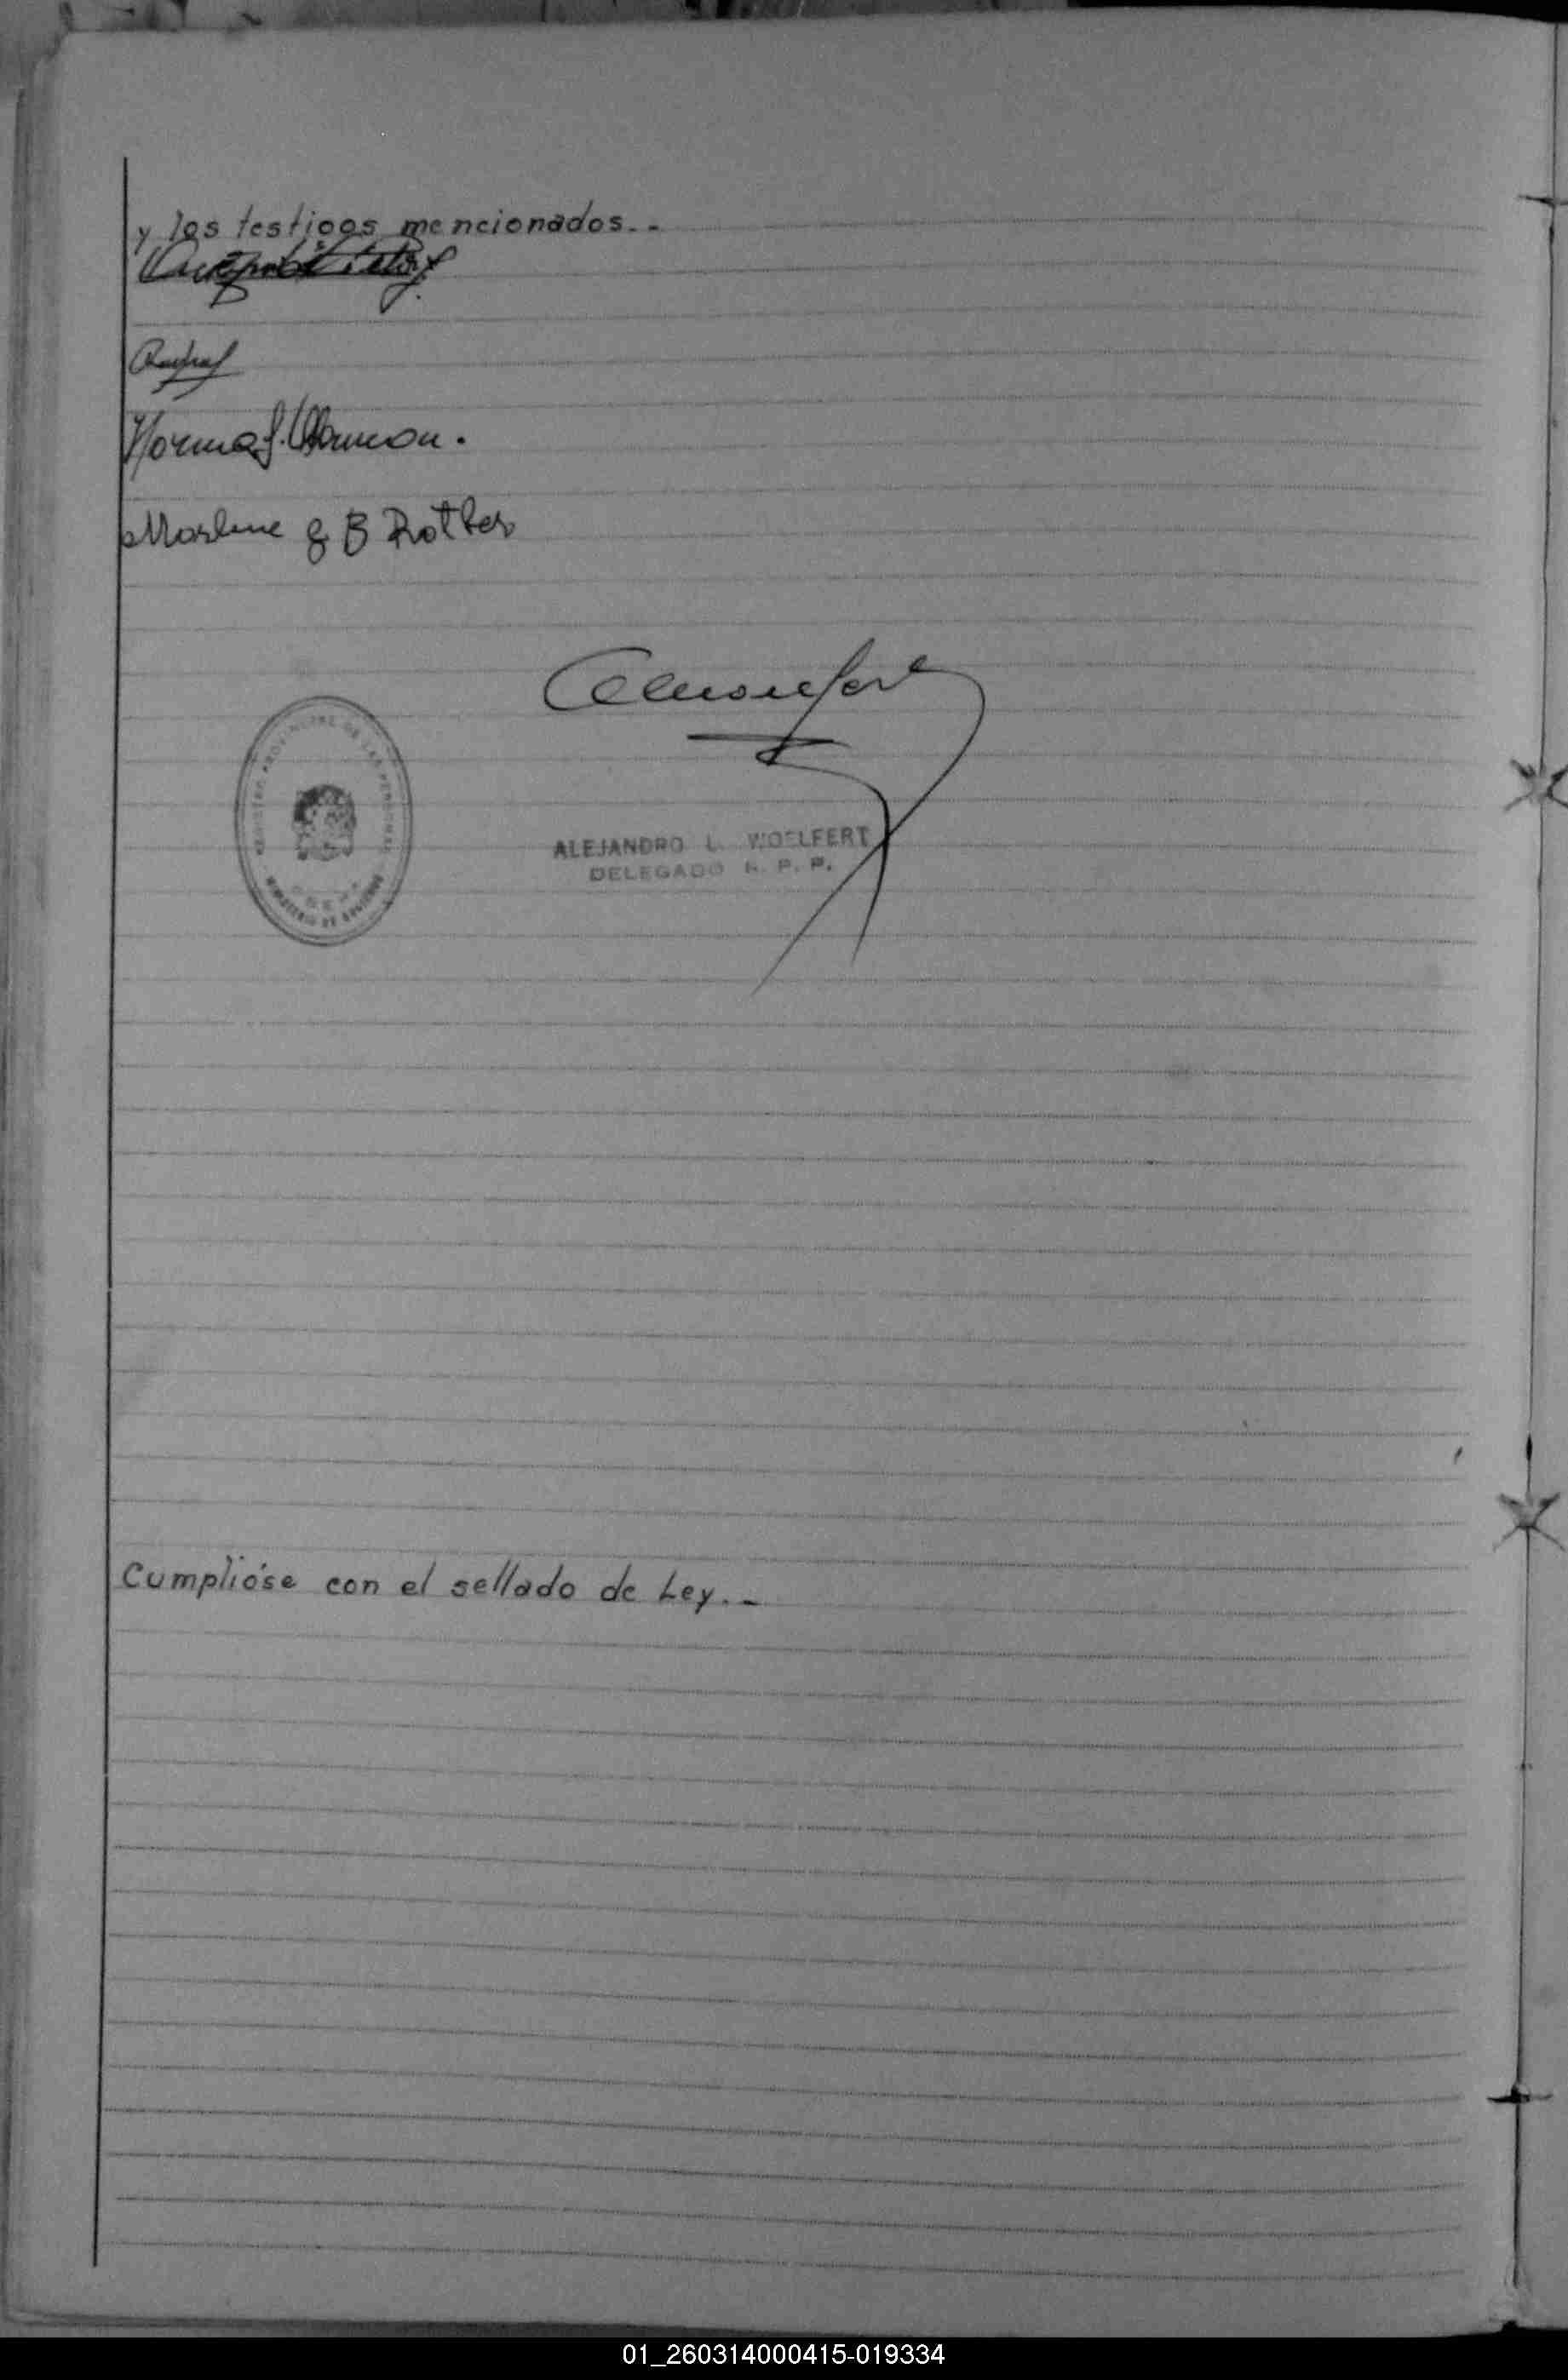 y los testigos mencionados.-
Norma
Marlene B Rotter
REGISTRO PROVINCIAL DE LAS PERSONAS
MINISTERIO DE GOBIERNO
ALEJANDRO L. WOELFERT
DELEGADO R. P. P.
Cumplióse con el sellado de Ley.-
01_260314000415-019334